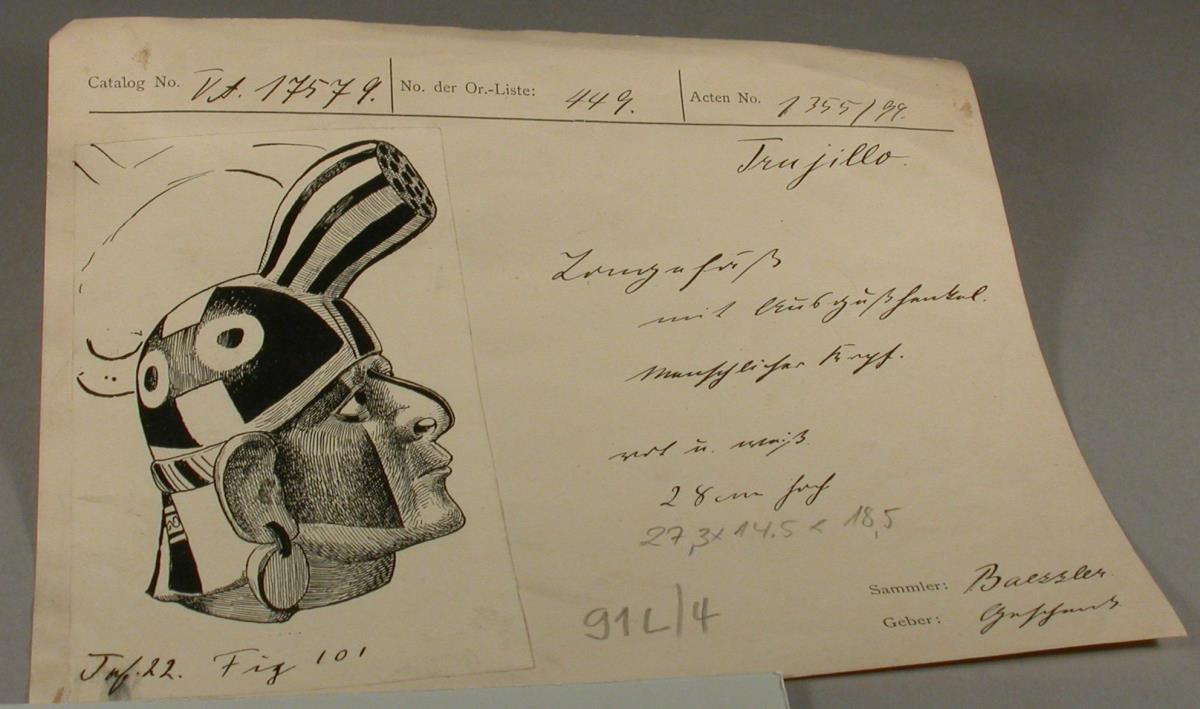 Catalog No. VA. 17579. No. der Or.-Liste: 449. Acten No. 1355/99.
Trujillo.
Tongefäß
mit Ausgußhenkel.
Menschlicher Kopf.
rot u. weiß
28 cm hoch
27,3 x 14.5 x 18,5
Sammler: Baessler.
91L/4
Geber: Geschenk
Taf. 22. Fig 101